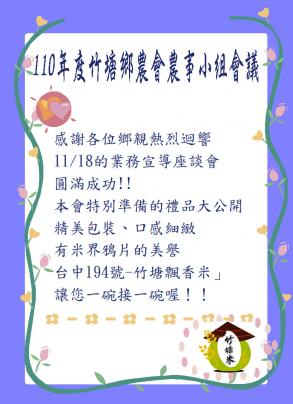 110年度竹塘鄉農會農事小組會議
感謝各位鄉親熱烈迴響
11/18的業務宣導座談會
圓滿成功!!
本會特別準備的禮品大公開
精美包裝、口感細緻
有米界鴉片的美譽
台中194號-竹塘飄香米」
讓您一碗接一碗喔！！
竹塘米